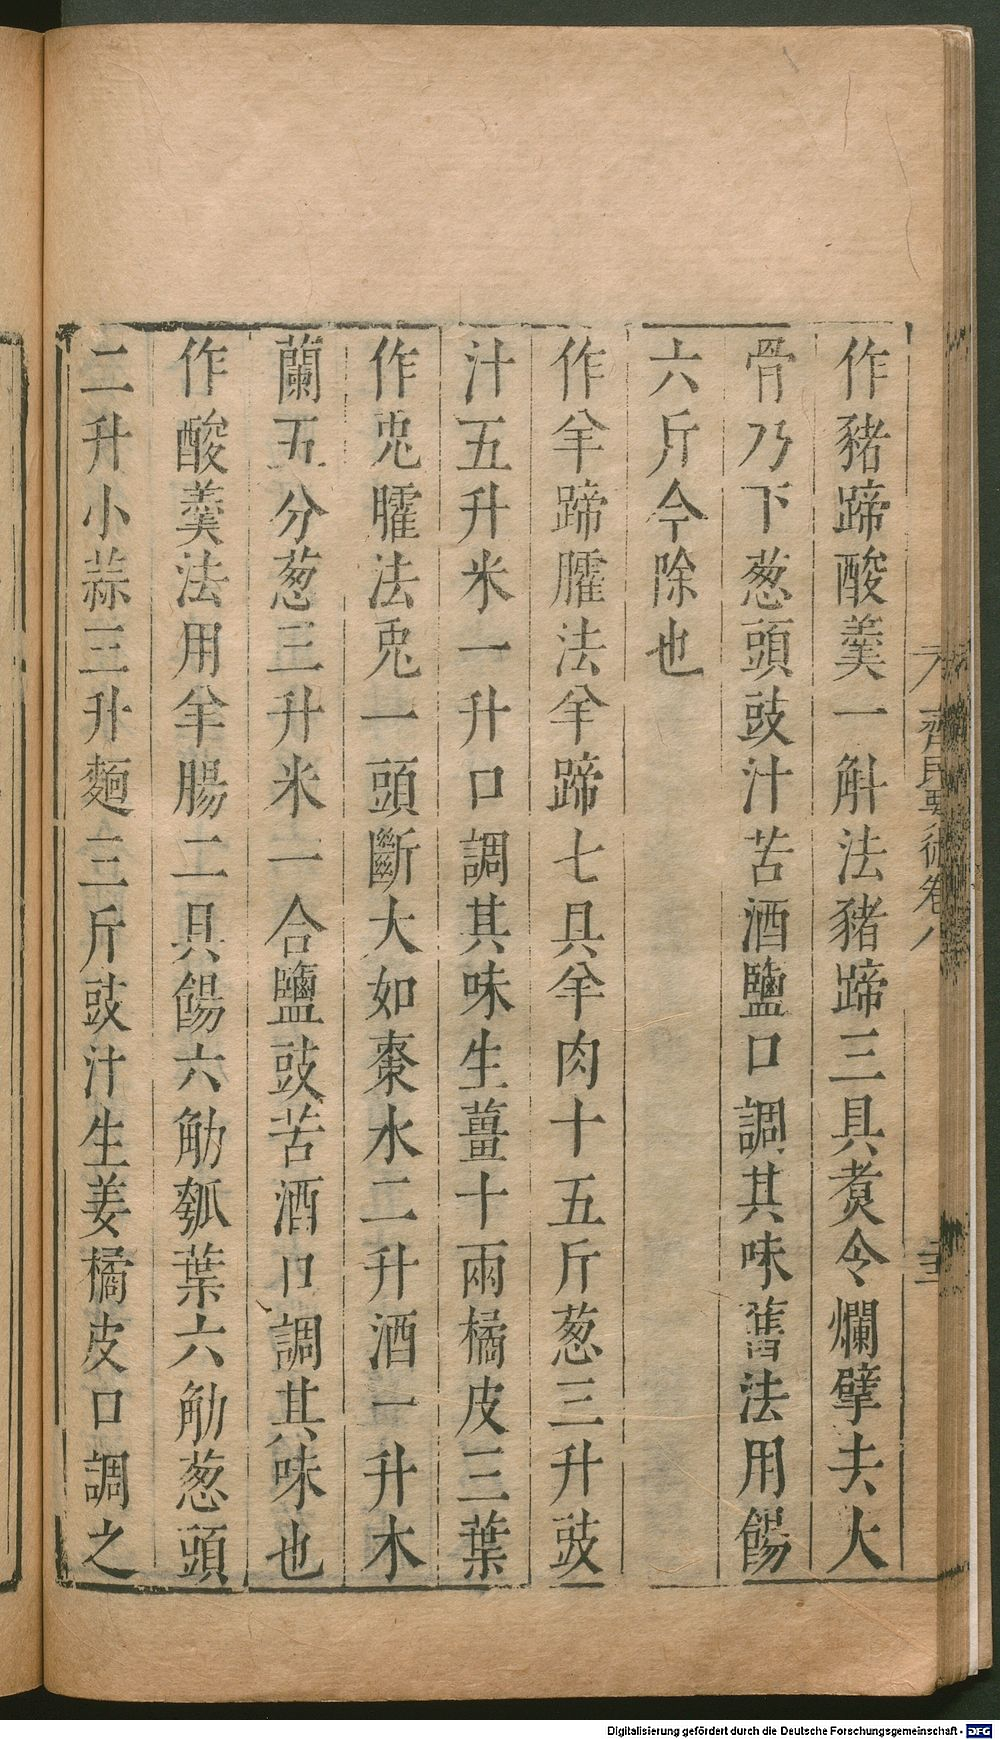 作豬蹄酸羹一斛法豬蹄三具煑令爛擘去大
骨乃下葱頭豉汁苦酒鹽口調其味舊法用餳
六斤今除也
作羊蹄臛法羊蹄七具羊肉十五斤葱三升豉
汁五升米一升口調其味生薑十兩橘皮三葉
作兎臛法兎一頭斷大如棗水二升酒一升木
蘭五分葱三升米一合鹽豉苦酒口調其味也
作酸羹法用羊腸二具餳六觔瓠葉六觔葱頭
二升小蒜三升麵三斤豉汁生姜橘皮口調之
齊民要術卷八
Digitalisierung gefördert durch die Deutsche Forschungsgemeinschaft - DFG